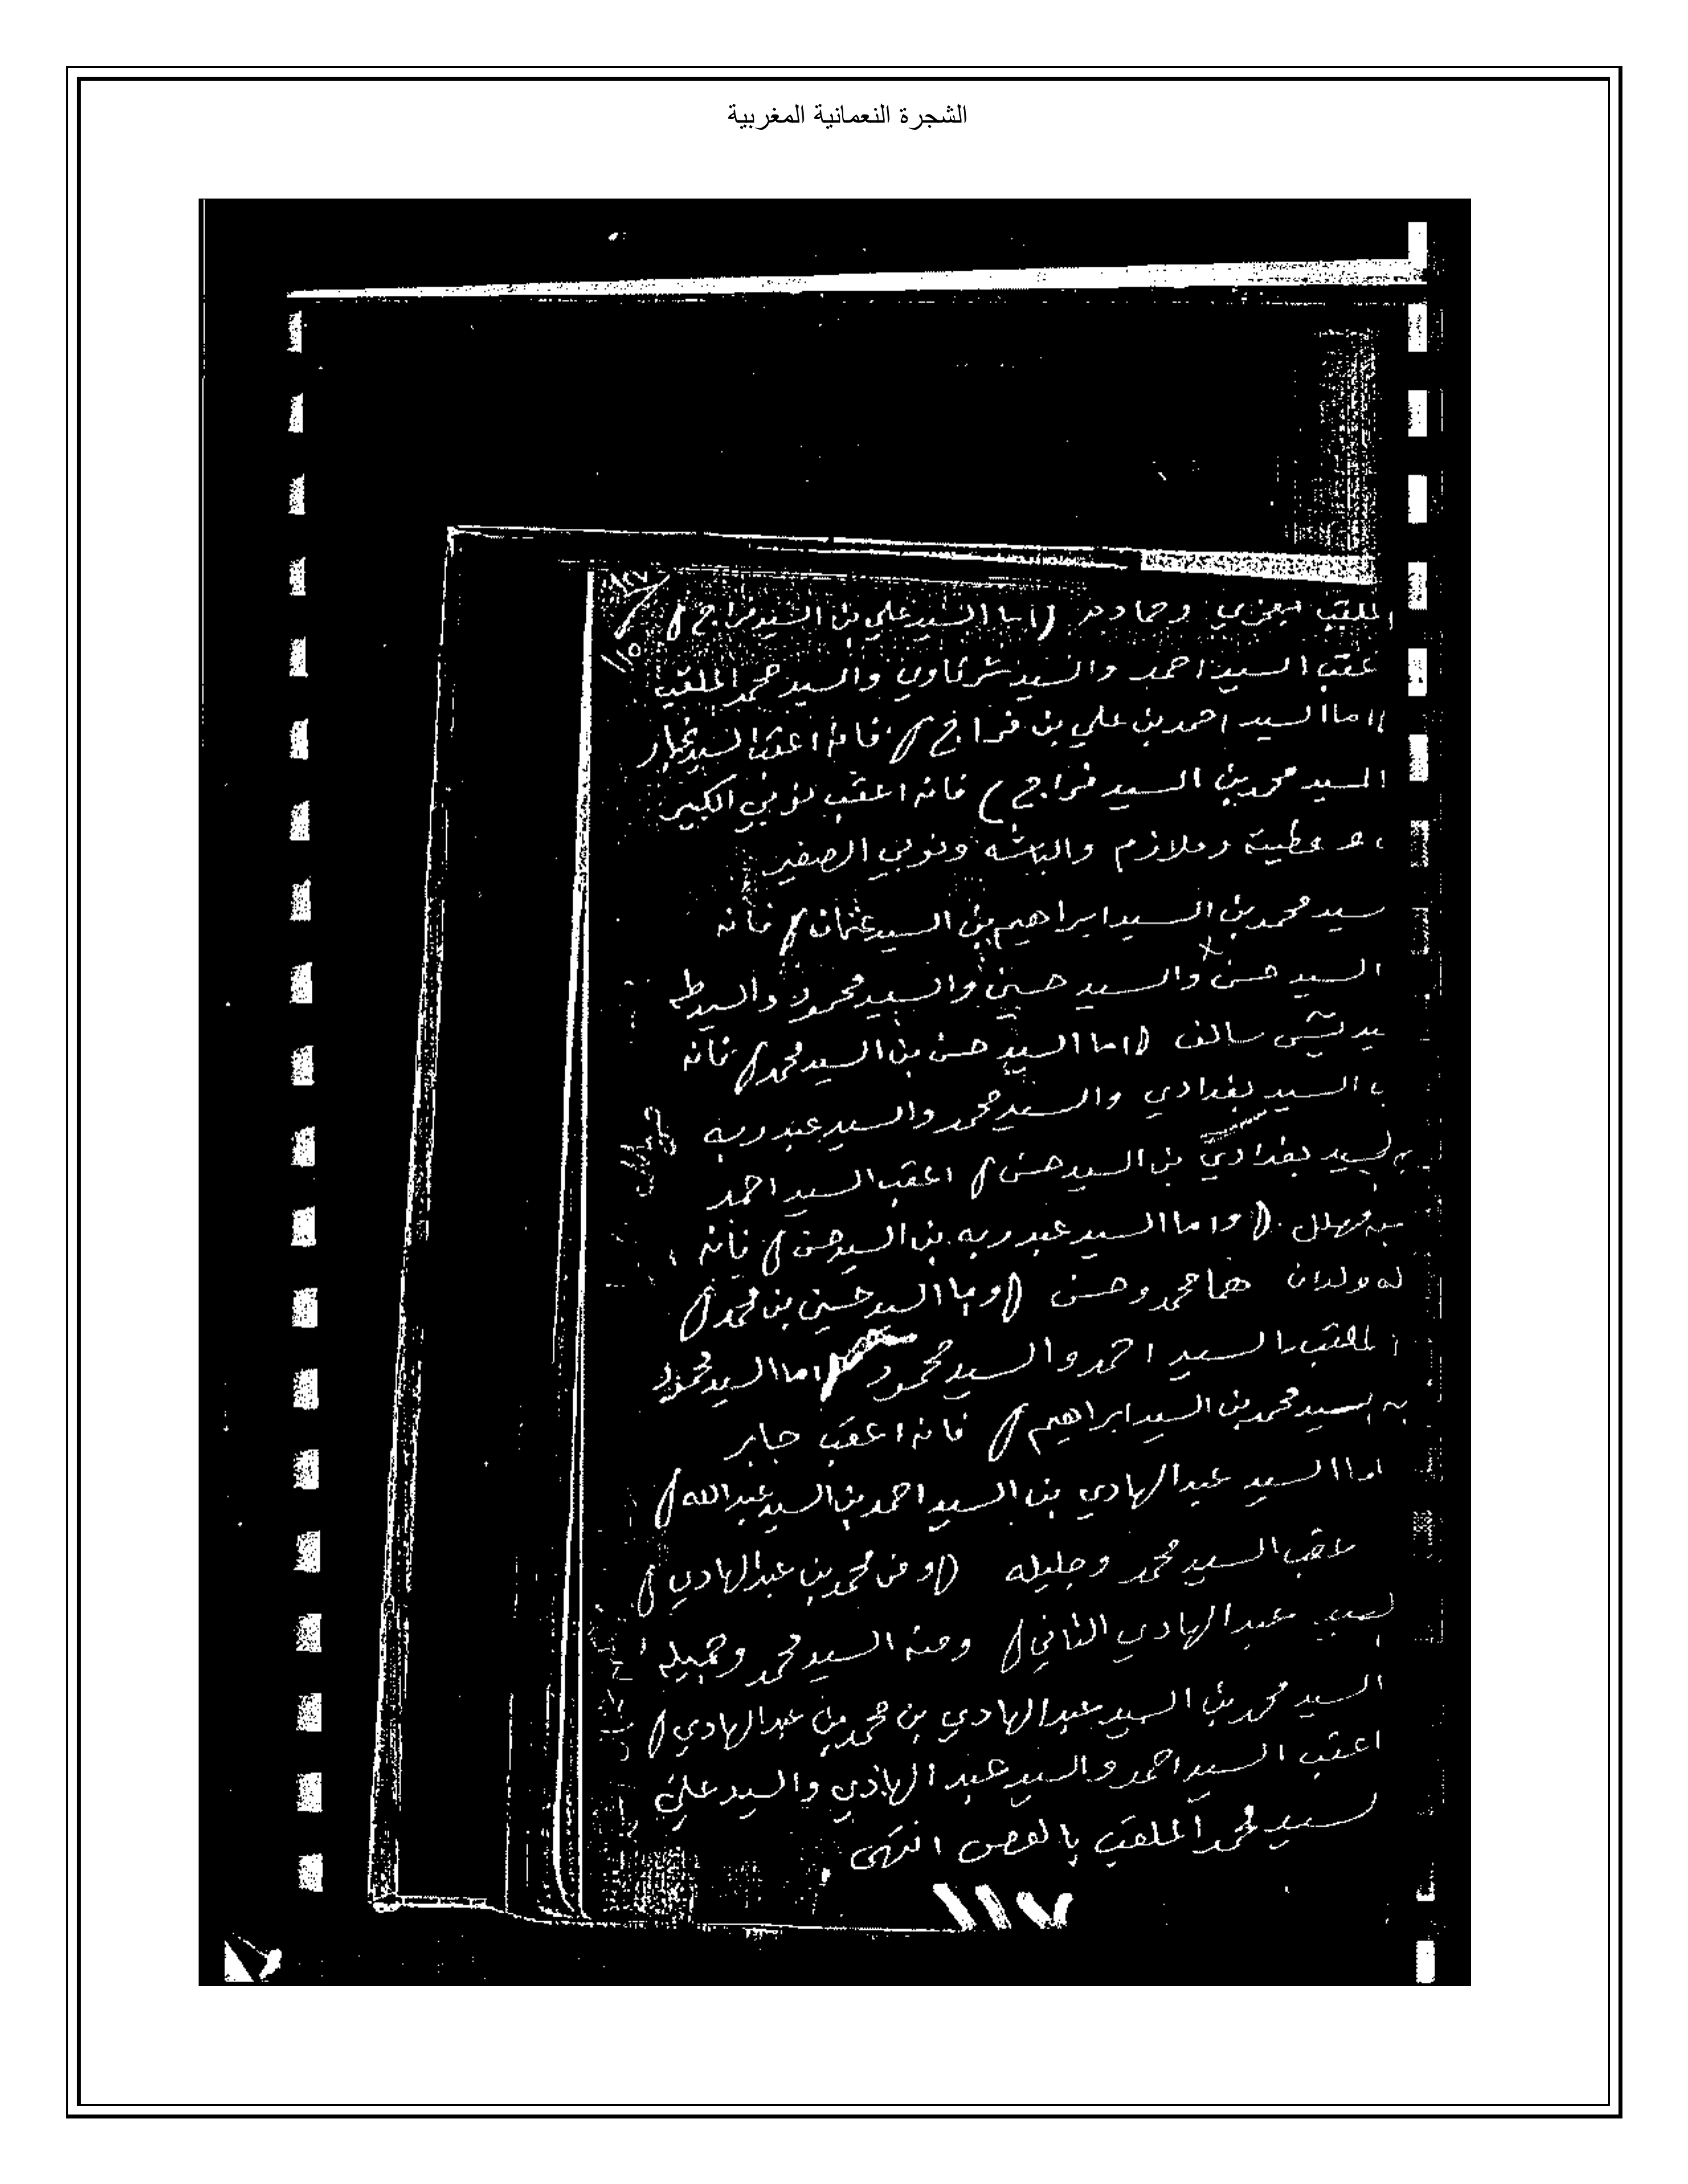 الشجرة النعمانية المغربية
١١٧
١١٥
الملقب وحماده (اما السيد علي بن السيد فراج)
عقب السيد احمد والسيد شرقاوي والسيد محمد الملقب
اما السيد احمد بن علي بن فراج) فانه اعقب السيد
السيد محمد بن السيد فراج) فانه اعقب نوبي الكبير
عطيته وملازم والباشه ونوبي الصغير
سيد محمد بن السيد ابراهيم بن السيد عثمان) فانه
السيد حسن والسيد حسين والسيد محمود والسيد طه
يد سالف (اما السيد حسن بن السيد محمد) فانه
ب السيد بغدادي والسيد محمد والسيد عبد ربه
لسيد بغدادي بن السيد حسن) اعقب السيد احمد
مهلل (واما السيد عبد ربه بن السيد حسن) فانه
له ولدان هما محمد وحسن (واما السيد حسين بن محمد)
السيد احمد والسيد محمود اما السيد محمود
سيد محمد بن السيد ابراهيم) فانه اعقب جابر
اما السيد عبد الهادي بن السيد احمد بن السيد عبد الله)
عقب السيد محمد وجليله (ومن محمد بن عبد الهادي)
لسيد عبد الهادي الثاني) ومنه السيد محمد وجميله
السيد محمد بن السيد عبد الهادي بن محمد بن عبد الهادي)
اعقب السيد احمد والسيد عبد الهادي والسيد علي
لسيد محمد الملقب بالعص انتهى
١١٧